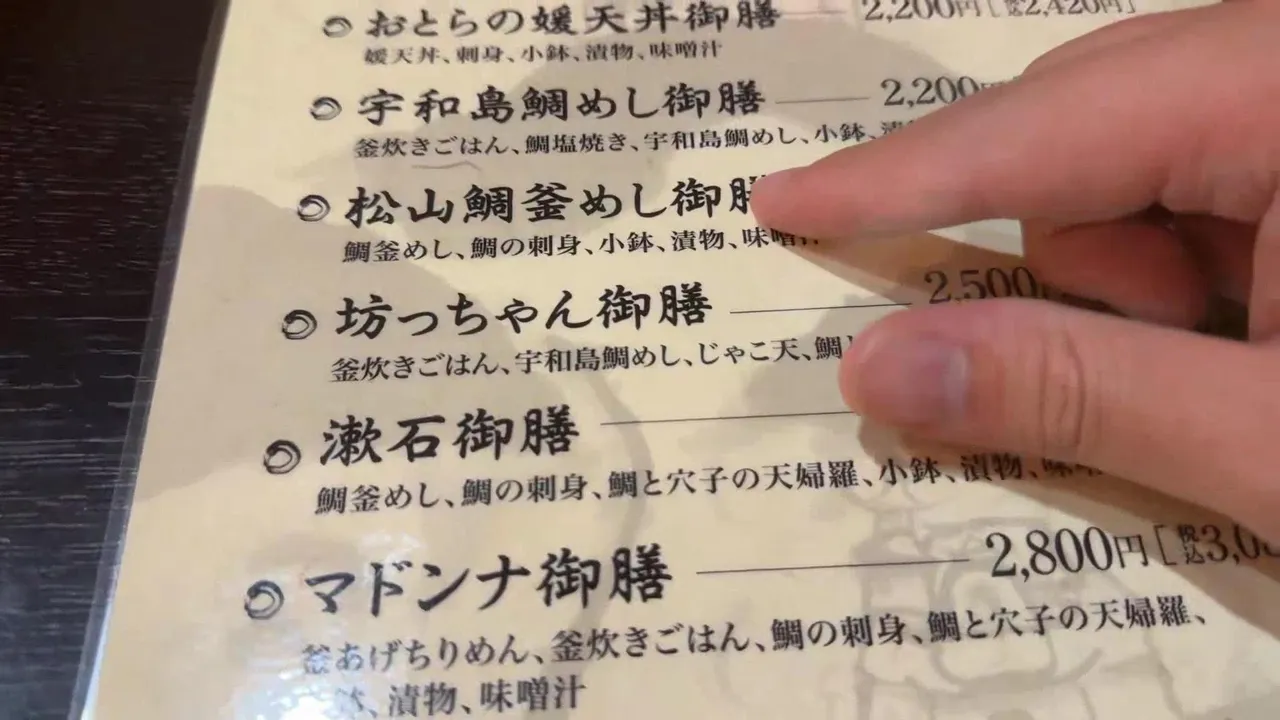 おとらの媛天丼御膳 2,200円[税込2,420円]
媛天丼、刺身、小鉢、漬物、味噌汁
宇和島鯛めし御膳 2,200
釜炊きごはん、鯛塩焼き、宇和島鯛めし、小鉢、
松山鯛釜めし御膳
鯛釜めし、鯛の刺身、小鉢、漬物、味噌汁
坊っちゃん御膳 2,500
釜炊きごはん、宇和島鯛めし、じゃこ天、鯛
漱石御膳
鯛釜めし、鯛の刺身、鯛と穴子の天婦羅、小鉢、漬物、味噌
マドンナ御膳 2,800円[税込3,0
釜あげちりめん、釜炊きごはん、鯛の刺身、鯛と穴子の天婦羅、
鉢、漬物、味噌汁